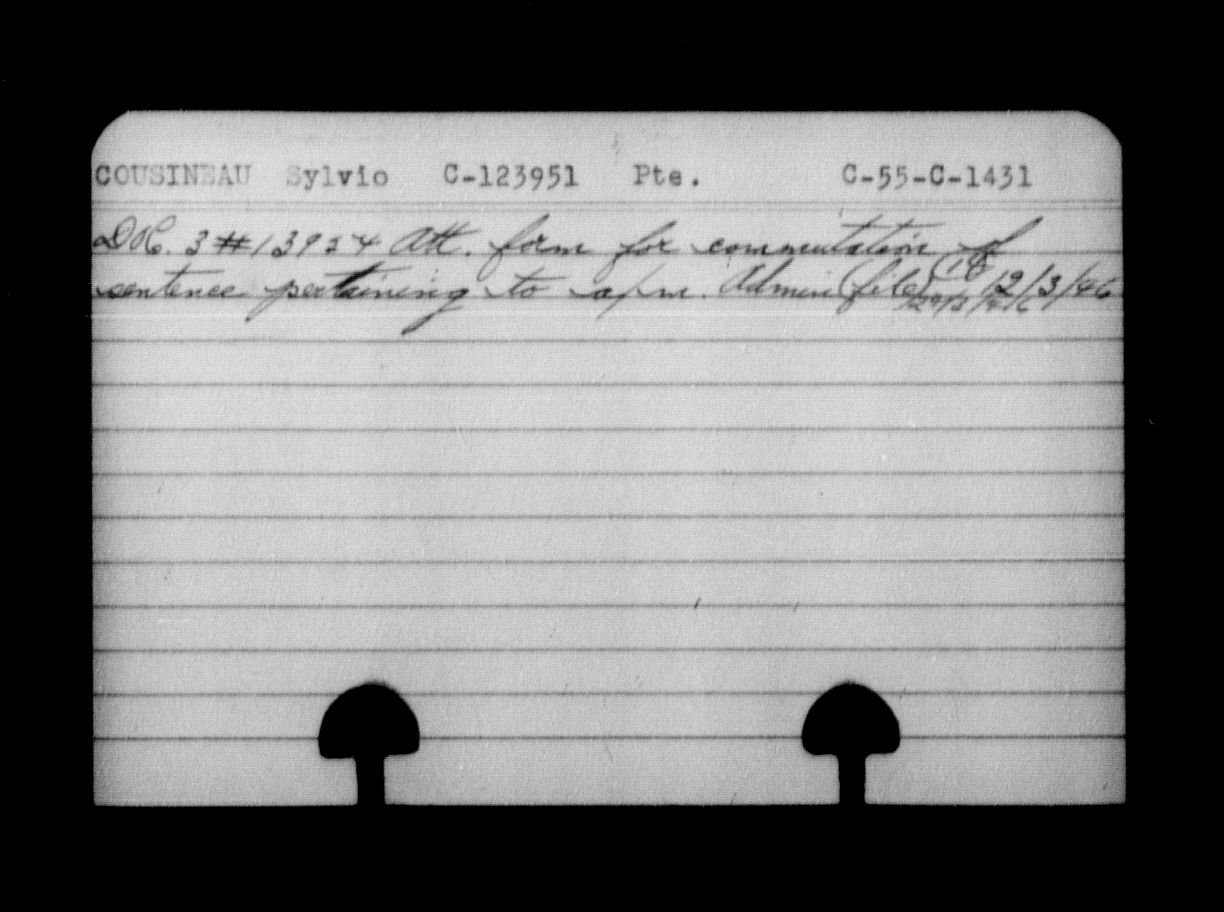 COUSINEAU Sylvio C-123951 Pte. C-55-C-1431
DOC. 3 #13954 Att. form for commutation of
sentence pertaining to a/m. Admin (file) 12/3/46
29/3/46